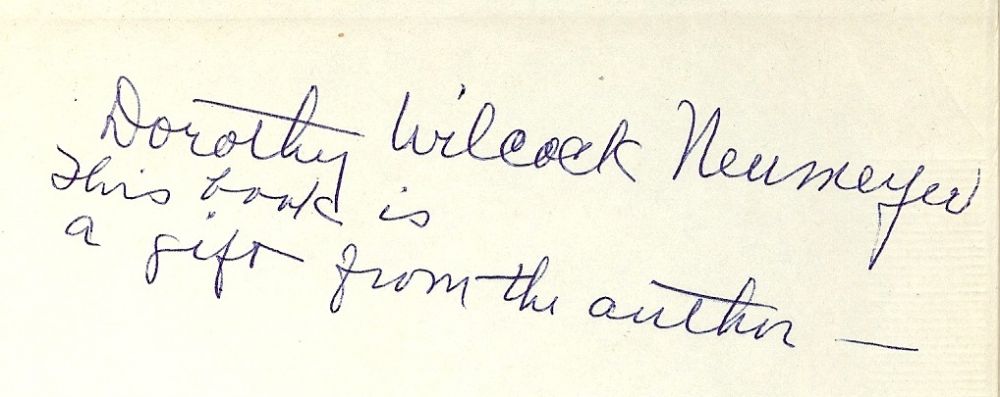 Dorothy Wilcock Neumeyer
This book is
a gift from the author —